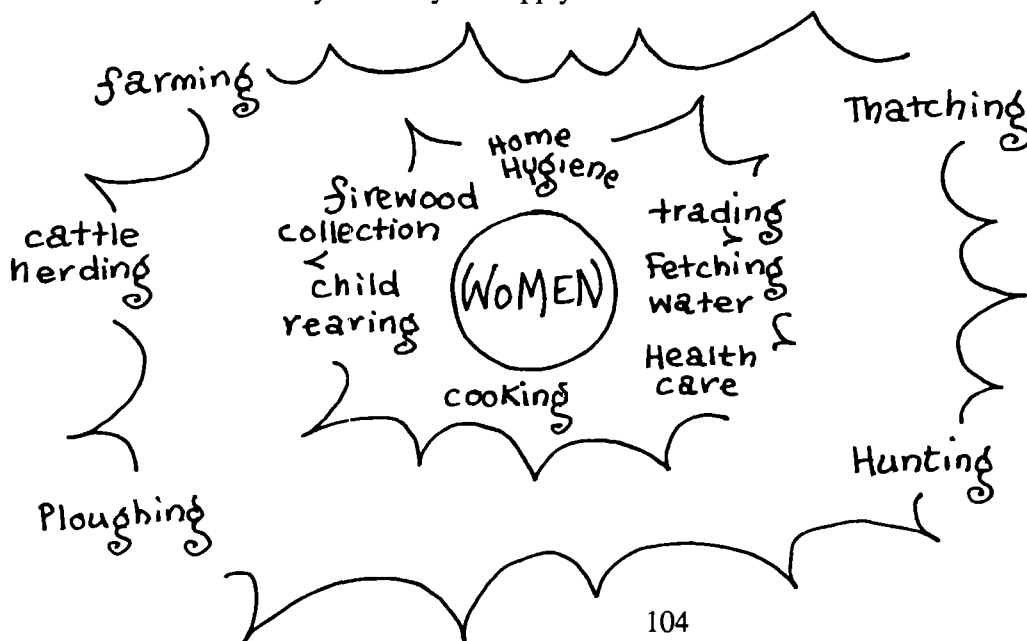 farming
Thatching
Home
Hygiene
firewood
collection
trading
cattle
herding
child
rearing
(WOMEN)
Fetching
water
Health
care
cooking
Hunting
Ploughing
104